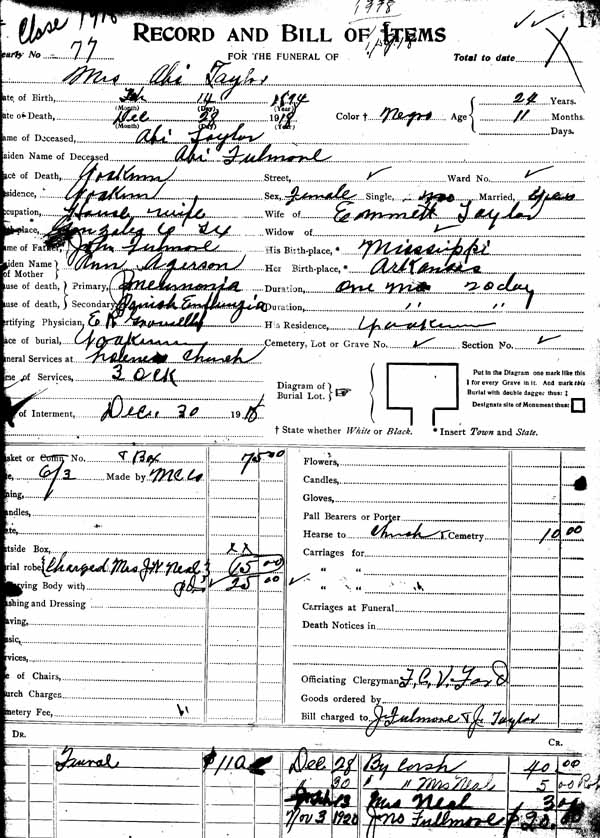 Close 1918 1918 17
RECORD AND BILL OF ITEMS
early No 77 FOR THE FUNERAL OF Total to date X
Mrs Abi Taylor
ate of Birth, Feb 14 1894 24 Years.
(Month) (Day) (Year)
ate of Death, Dec 28 1918 Color † Negro Age 11 Months.
(Month) (Day) (Year) Days.
ame of Deceased, Abi Taylor
aiden Name of Deceased Abi Fulmore
ace of Death, Yoakum Street, Ward No.
sidence, Yoakum Sex, Female Single, no Married, yes
cupation, House wife Wife of Emmett Taylor
th-place, Gonzales Co Tx Widow of
ame of Father, John Fulmore His Birth-place,* Missippi
aiden Name of Mother Ann Agerson Her Birth-place,* Arkansas
use of death, Primary, Pneumonia Duration, one mo 20 day
use of death, Secondary, Duration, " "
ertifying Physician, E R His Residence, Yoakum
ace of burial, Yoakum Cemetery, Lot or Grave No. Section No.
neral Services at holiness Church
me of Services, 3 OCK
Diagram of Burial Lot.
Put in the Diagram one mark like this
I for every Grave in it. And mark this
Burial with double dagger thus: ‡
Designate site of Monument thus:
of Interment, Dec. 30 1918
† State whether White or Black. * Insert Town and State.
asket or Coffin No. & Box 75 00
e, 6/3 Made by M C Co
ning,
andles,
ate,
utside Box, x x
rial robe Charged Mrs J W Neal 15 00
erving Body with pd 25 00
ashing and Dressing
aving,
usic,
rvices,
e of Chairs,
urch Charges
metery Fee,
Flowers,
Candles,
Gloves,
Pall Bearers or Porter
Hearse to Church & Cemetry 10 00
Carriages for
" "
" "
Carriages at Funeral
Death Notices in
Officiating Clergyman F, C, V, Ford
Goods ordered by
Bill charged to J. Fulmore & J. Taylor
DR. CR.
Funeral $110 Dec 28 By Cash 40 .00
30 " " Mrs Neal 5 00
13 Mrs Neal 3
Nov 3 1920 Jno Fullmore $20.00